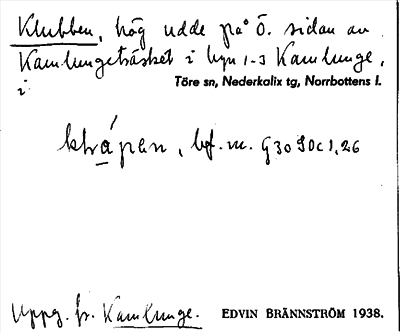 Klubben, hög udde på Ö. sidan av
Kamlungeträsket i byn 1-3 Kamlunge,
i
Töre sn, Nederkalix tg, Norrbottens l.
bf. m.
Uppg. fr. Kamlunge.
EDVIN BRÄNNSTRÖM 1938.